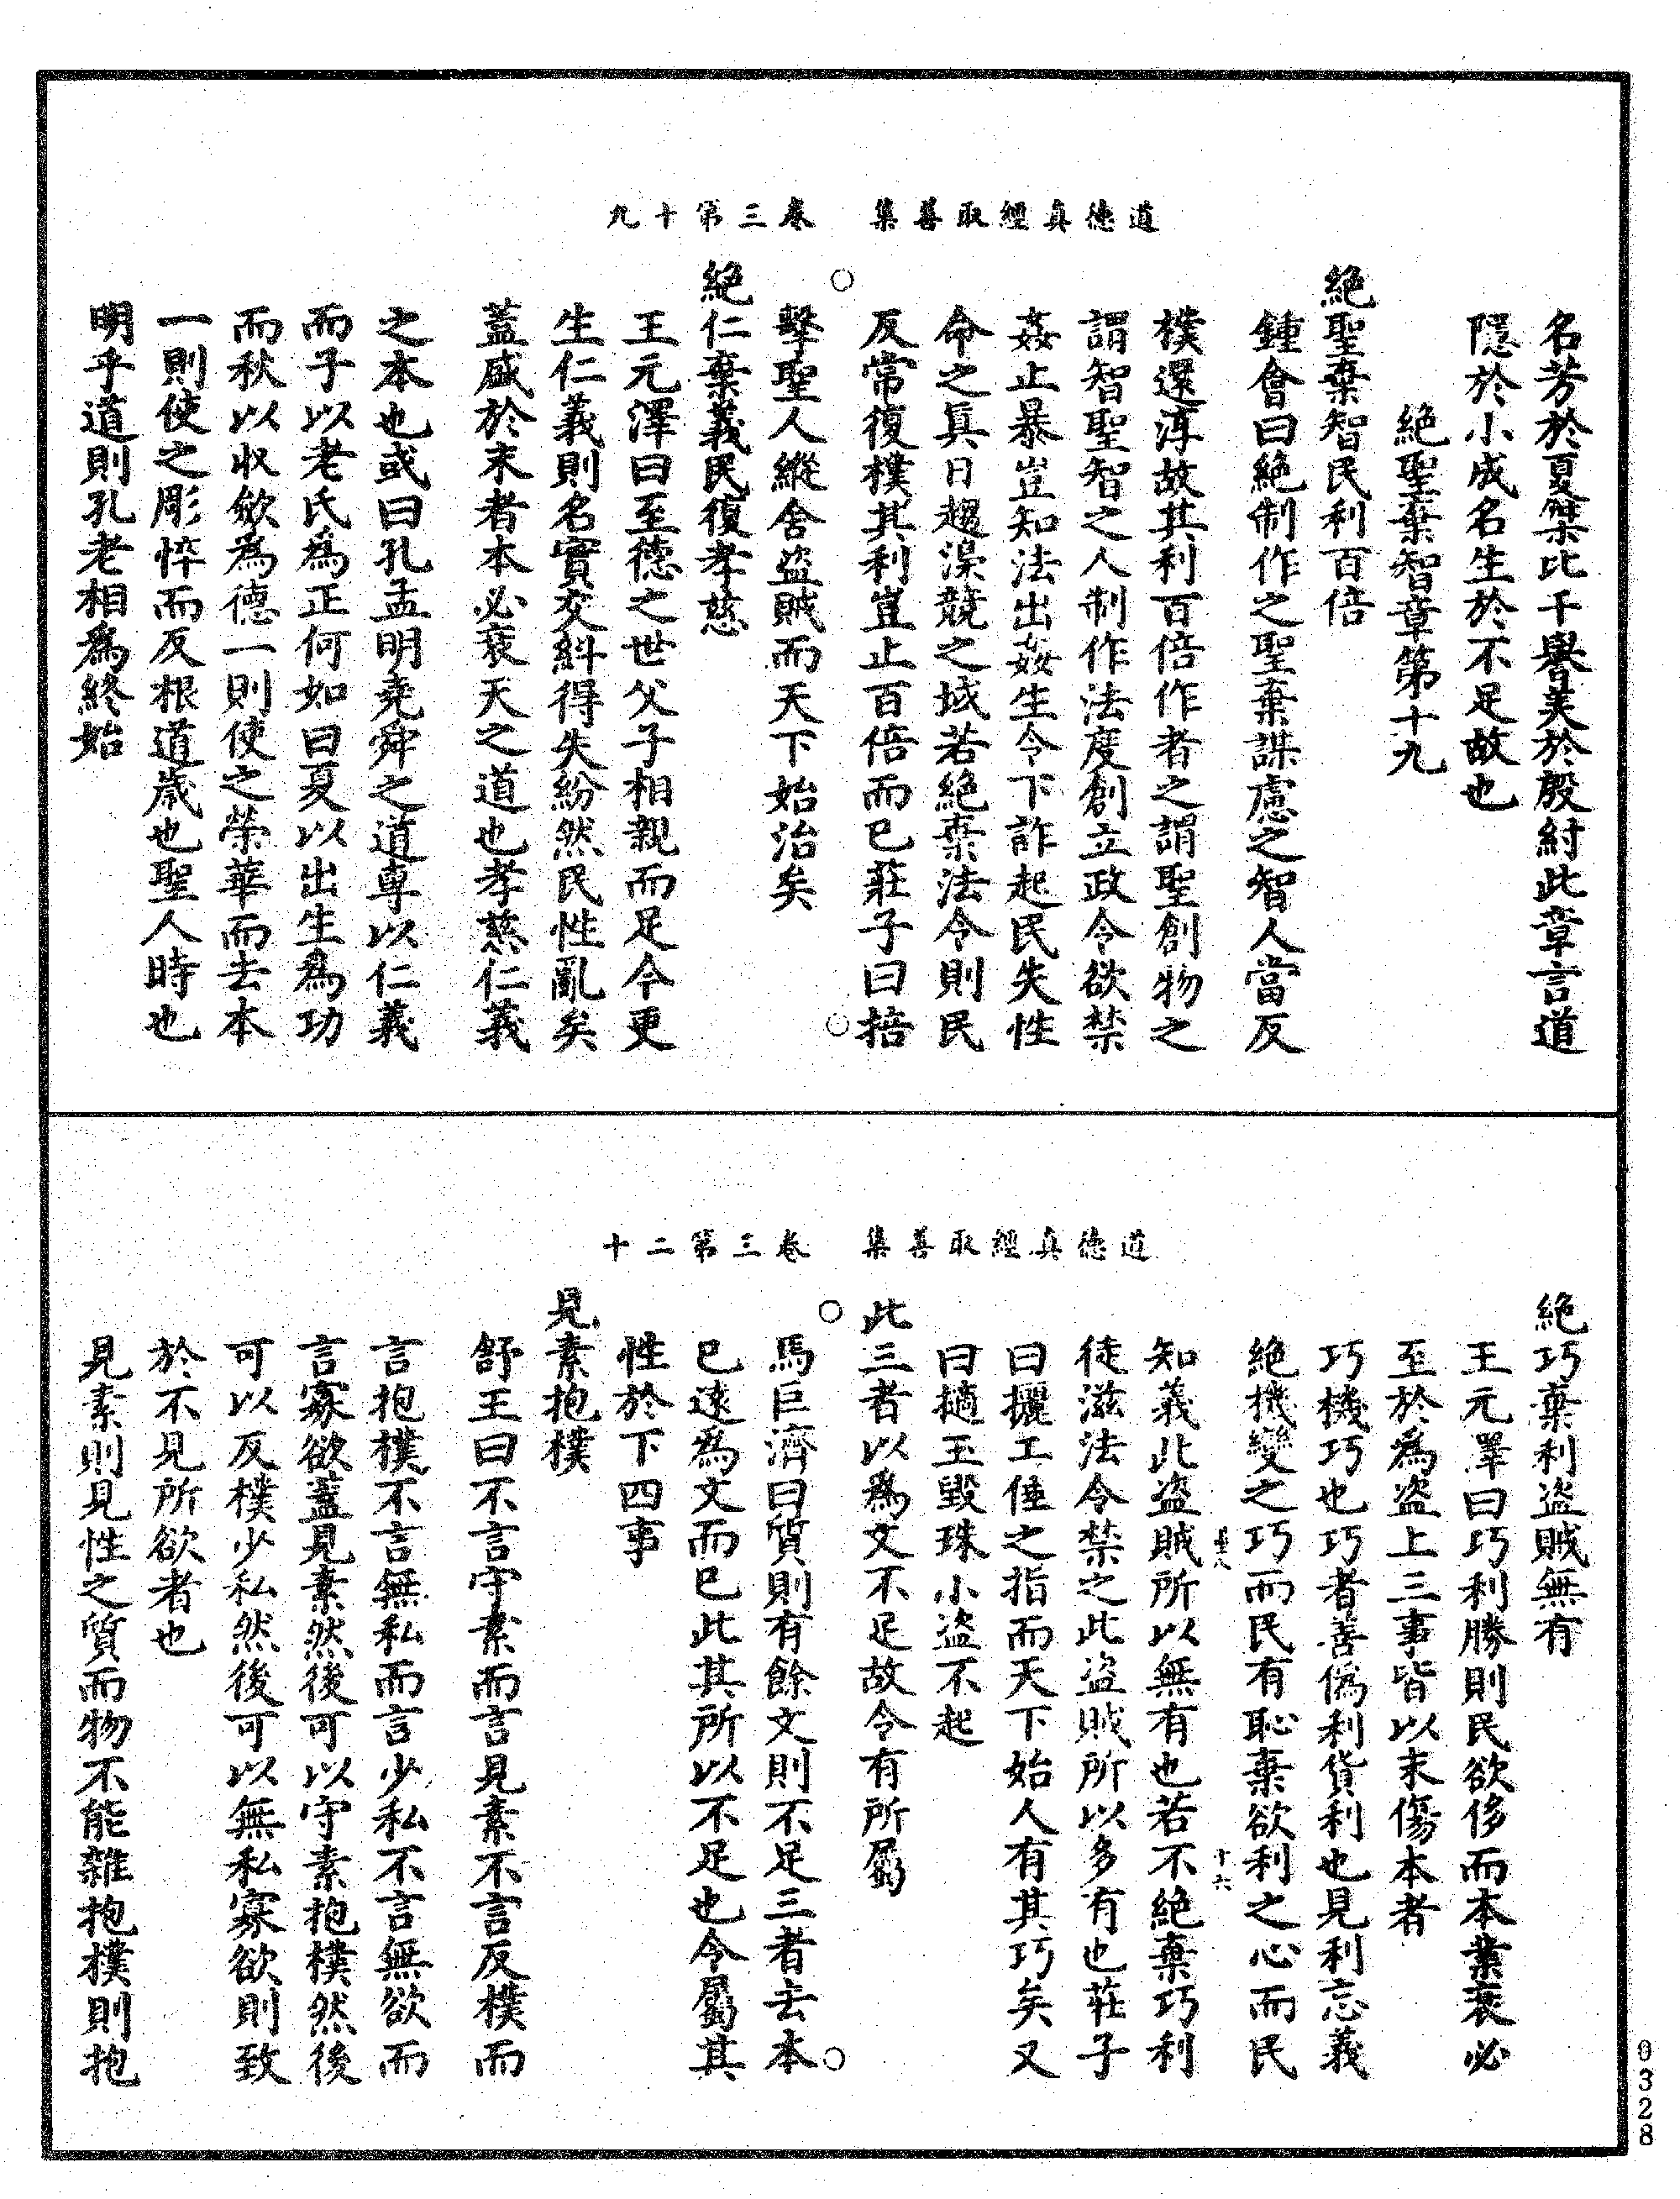 道德真經取善集　卷三第十九
名芳於夏桀比干譽美於殷紂此章言道
隱於小成名生於不足故也
絕聖棄智章第十九
絕聖棄智民利百倍
鍾會曰絕制作之聖棄謀慮之智人當反
樸還淳故其利百倍作者之謂聖創物之
謂智聖智之人制作法度創立政令欲禁
姦止暴豈知法出姦生令下詐起民失性
命之真日趨澡競之域若絕棄法令則民
反常復樸其利豈止百倍而已莊子曰掊
擊聖人縱舍盜賊而天下始治矣
絕仁棄義民復孝慈
王元澤曰至德之世父子相親而足今更
生仁義則名實交糾得失紛然民性亂矣
蓋盛於末者本必衰天之道也孝慈仁義
之本也或曰孔孟明堯舜之道專以仁義
而子以老氏為正何如曰夏以出生為功
而秋以收斂為德一則使之榮華而去本
一則使之彫悴而反根道歲也聖人時也
明乎道則孔老相為終始
道德真經取善集　卷三第二十
絕巧棄利盜賊無有
王元澤曰巧利勝則民欲侈而本業衰必
至於為盜上三事皆以末傷本者
巧機巧也巧者善偽利貨利也見利忘義
絕機變之巧而民有恥棄欲利之心而民
十六
知義此盜賊所以無有也若不絕棄巧利
徒滋法令禁之此盜賊所以多有也莊子
曰攦工倕之指而天下始人有其巧矣又
曰擿玉毀珠小盜不起
此三者以為文不足故令有所屬
馬巨濟曰質則有餘文則不足三者去本
已遠為文而已此其所以不足也令屬其
性於下四事
見素抱樸
舒王曰不言守素而言見素不言反樸而
言抱樸不言無私而言少私不言無欲而
言寡欲蓋見素然後可以守素抱樸然後
可以反樸少私然後可以無私寡欲則致
於不見所欲者也
見素則見性之質而物不能雜抱樸則抱
0328